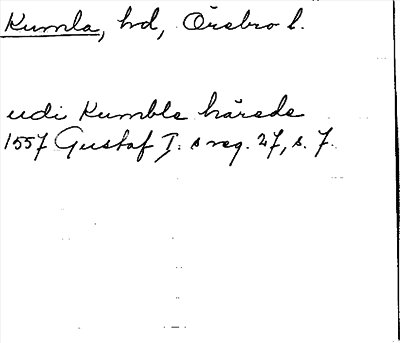 Kumla, hd, Örebro l.
udi Kumble härede
1557 Gustaf I:s reg. 27, s. 7.